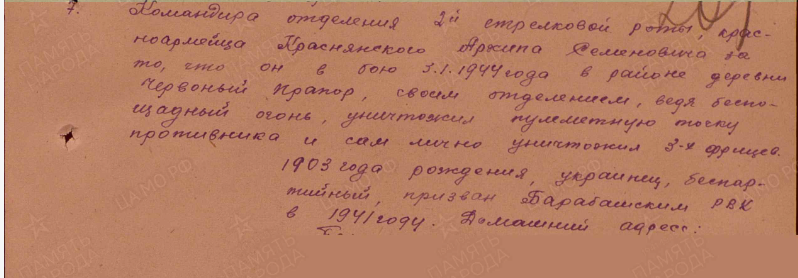 7. Командира отделения 2й стрелковой роты, крас-
ноармейца Краснянского Архипа Семеновича за
то, что он в бою 3.1.1944 года в районе деревни
Червоный Прапор, своим отделением, ведя беспо-
щадный огонь, уничтожил пулеметную точку
противника и сам лично уничтожил 3-х фрицев.
1903 года рождения, украинец, беспар-
тийный, призван Барабашским РВК
в 1941 году. Домашний адрес: